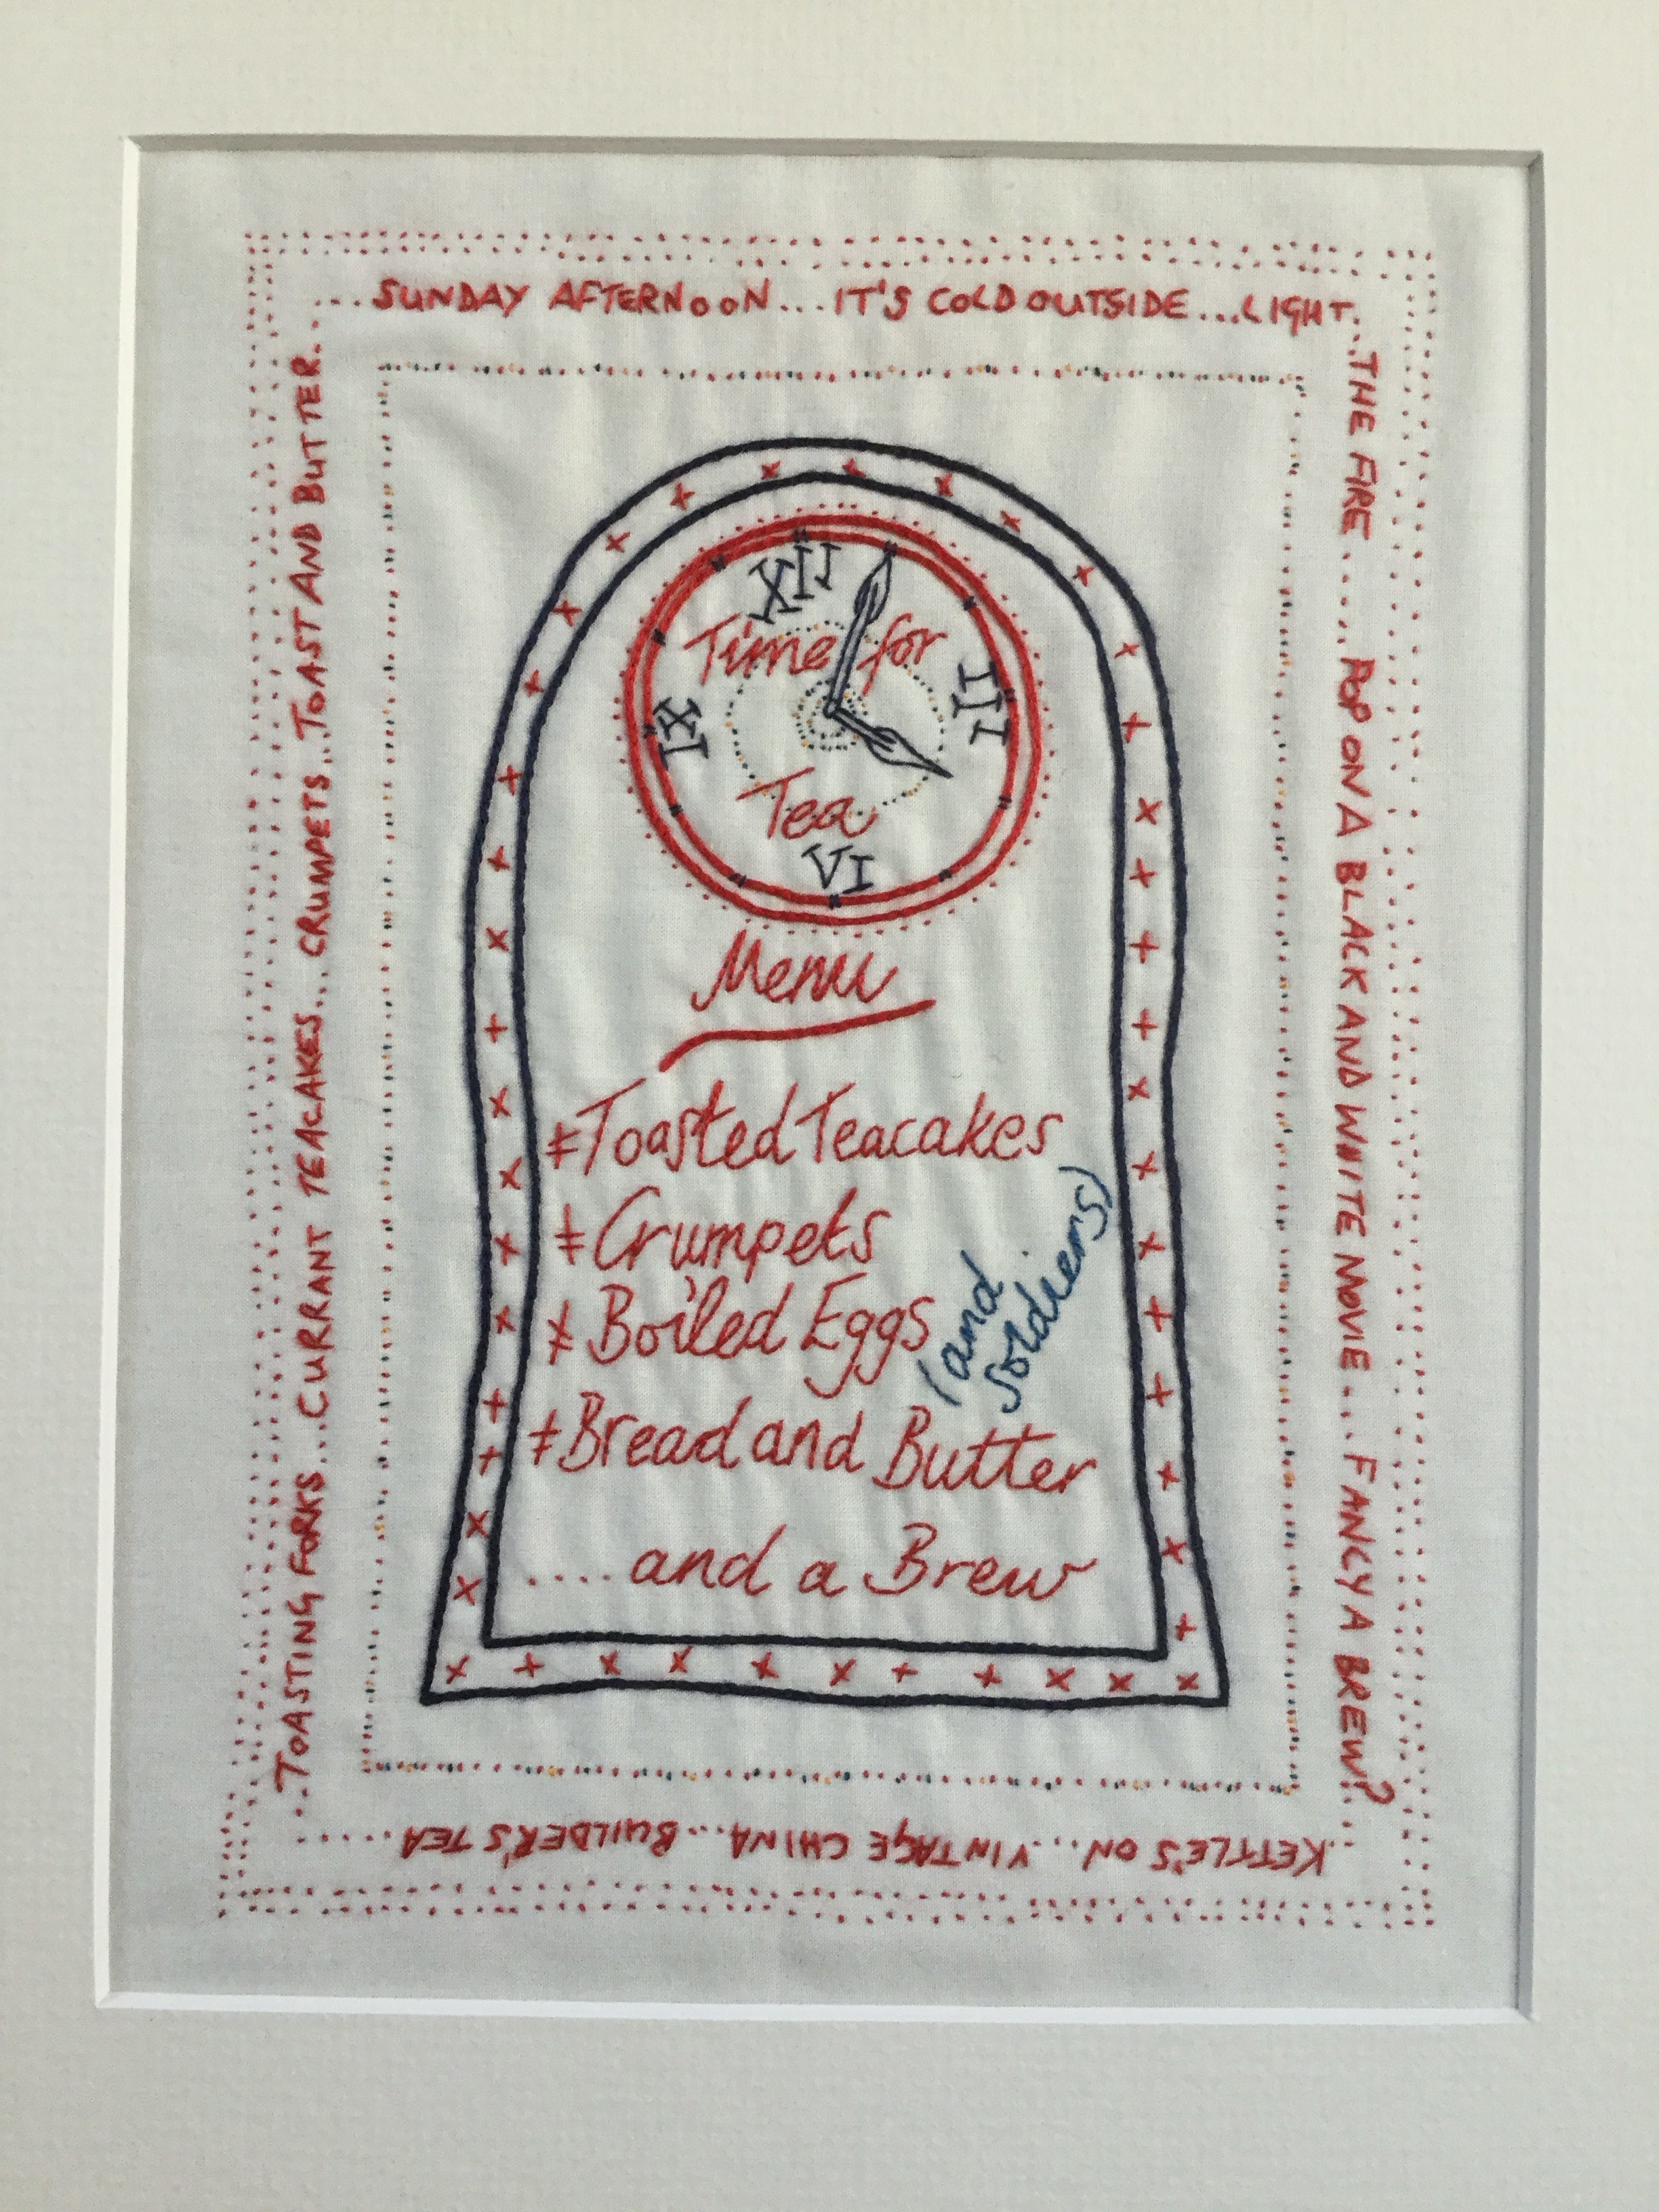 ...SUNDAY AFTERNOON...IT'S COLD OUTSIDE...LIGHT.
..THE FIRE.....POP ON A BLACK AND WHITE MOVIE...FANCY A BREW?
..KETTLE'S ON...VINTAGE CHINA...BUILDER'S TEA......
..TOASTING FORKS...CURRANT TEACAKES...CRUMPETS...TOAST AND BUTTER..
XII
Time for
IX
III
Tea
VI
Menu
Toasted Teacakes
Crumpets
Boiled Eggs
(and
soldiers)
Bread and Butter
....and a Brew